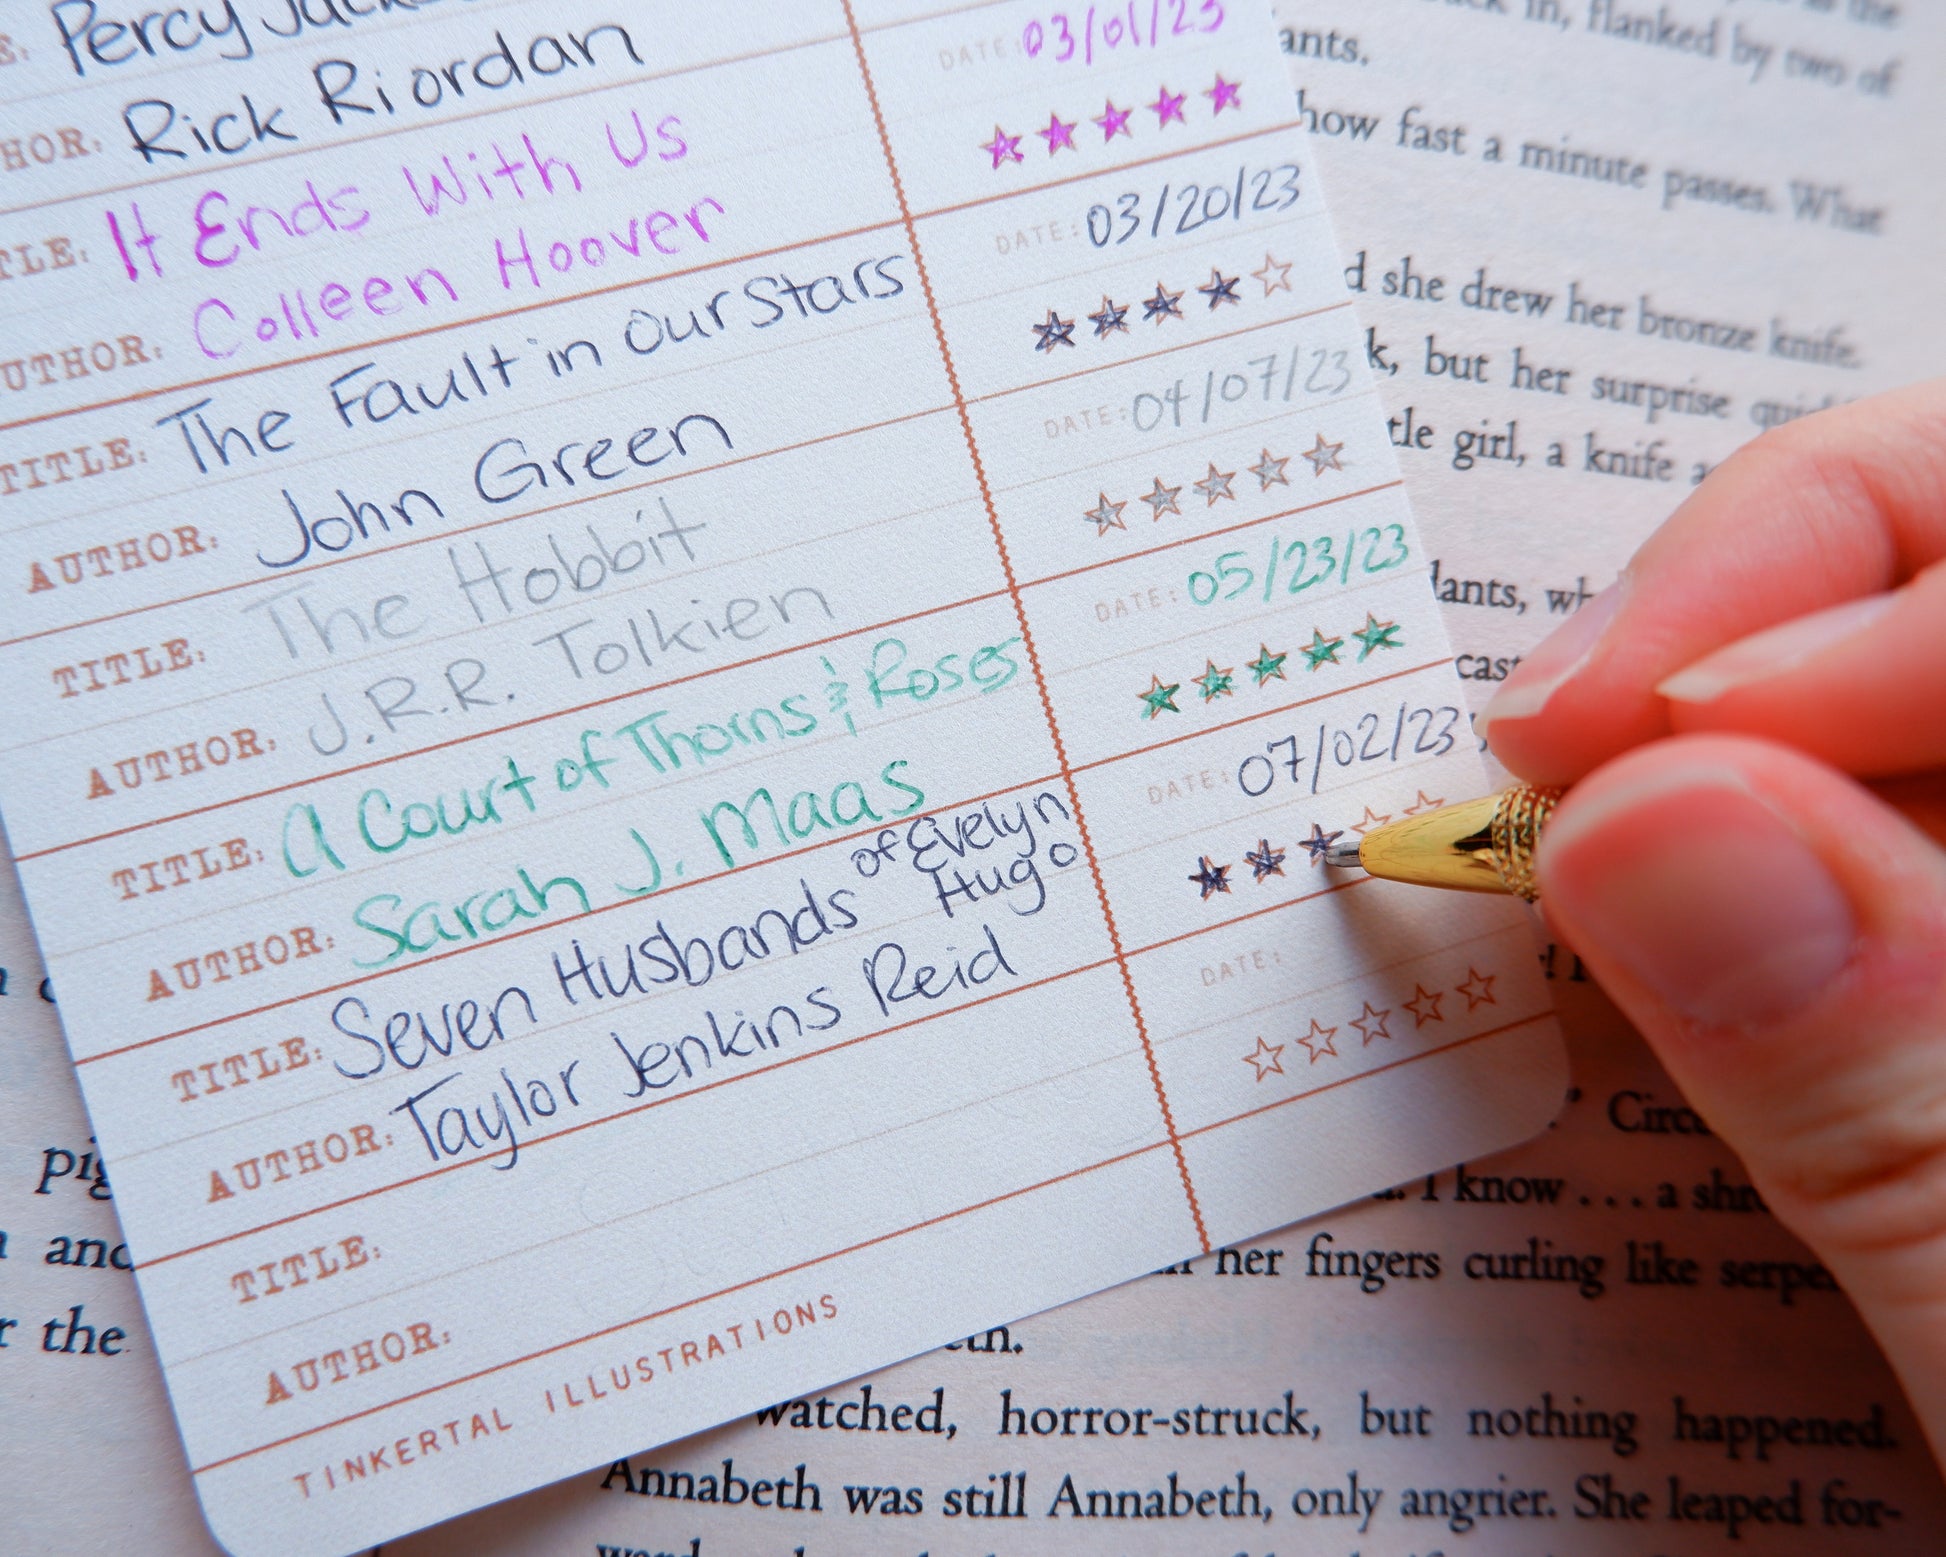 Percy
HOR: Rick Riordan
DATE: 03/01/23
TLE: It Ends With Us
UTHOR: Colleen Hoover
DATE: 03/20/23
TITLE: The Fault in our Stars
AUTHOR: John Green
DATE: 04/07/23
TITLE: The Hobbit
AUTHOR: J.R.R. Tolkien
DATE: 05/23/23
TITLE: A Court of Thorns & Roses
AUTHOR: Sarah J. Maas
DATE: 07/02/23
TITLE: Seven Husbands of Evelyn Hugo
AUTHOR: Taylor Jenkins Reid
DATE:
TITLE:
AUTHOR:
TINKERTAL ILLUSTRATIONS
in, flanked by two of
ants.
how fast a minute passes. What
d she drew her bronze knife.
k, but her surprise
tle girl, a knife
lants,
cast
Circ
I know . . . a
her fingers curling like
eth.
watched, horror-struck, but nothing happened.
Annabeth was still Annabeth, only angrier. She leaped for-
and
r the